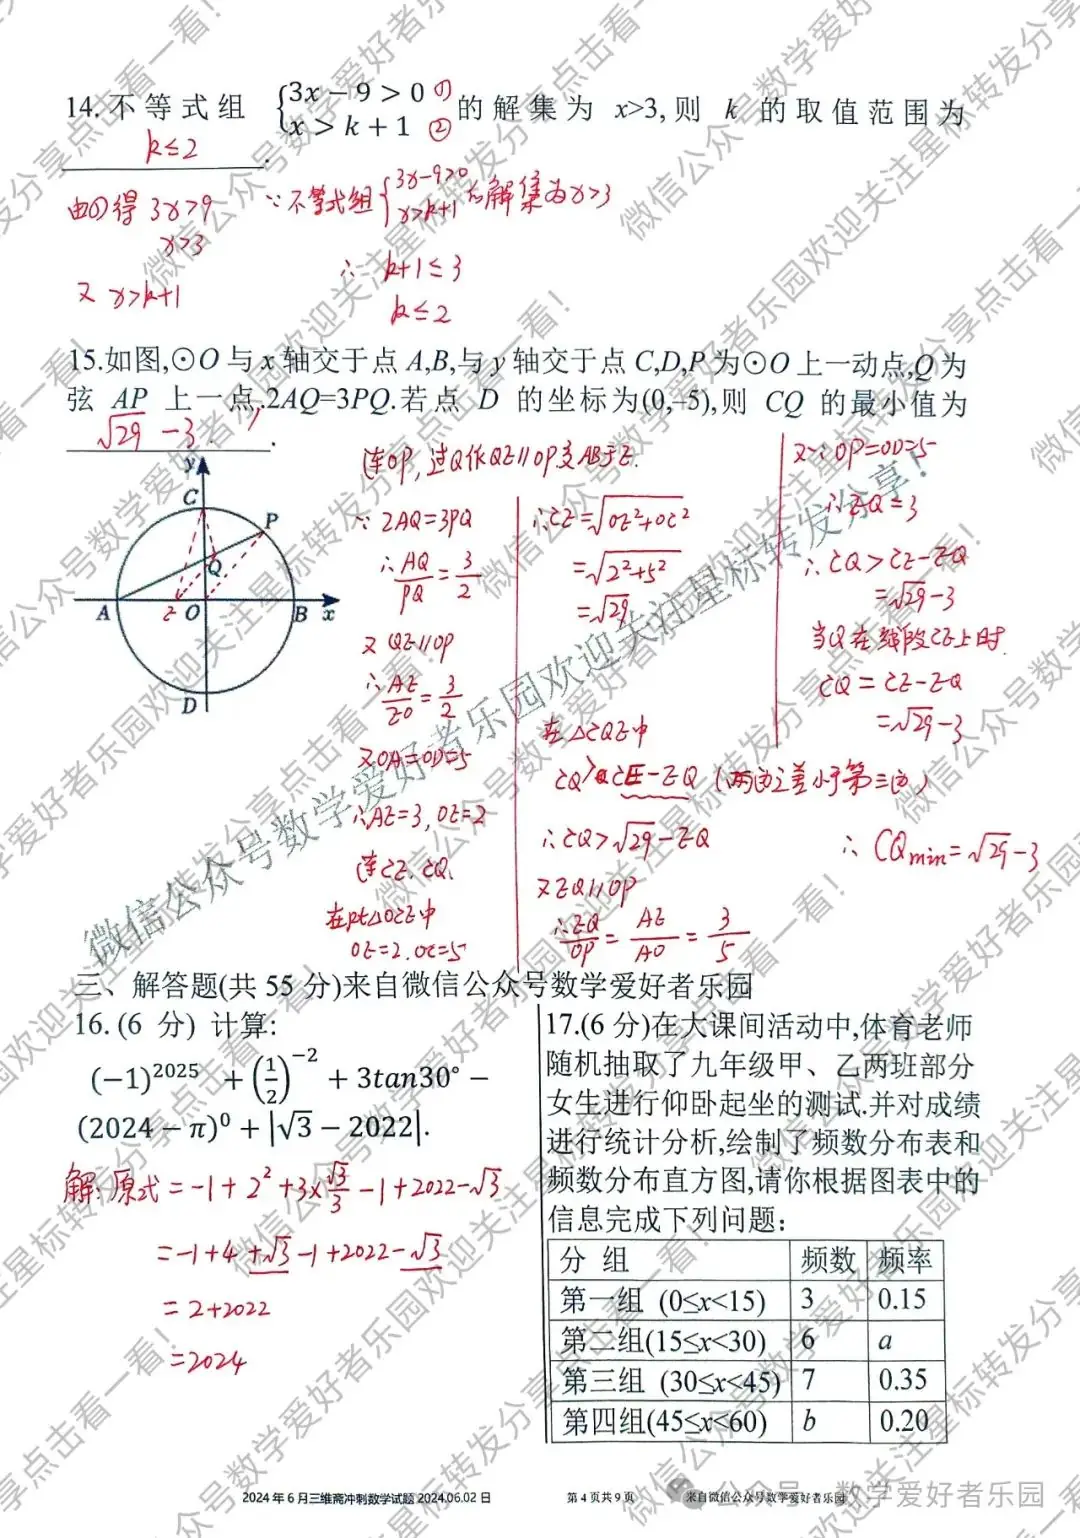 14.不等式组 {3x－9＞0 ① x＞k＋1 ② 的解集为 x>3,则 k 的取值范围为
k≤2 .
由①得 3x>9 ∵不等式组{3x-9>0 x>k+1 的解集为x>3
x>3
∴ k+1≤3
又 x>k+1
k≤2
15.如图,⊙O与x轴交于点A,B,与y轴交于点C,D,P为⊙O上一动点,Q为
弦 AP 上一点.2AQ=3PQ.若点 D 的坐标为(0,–5),则 CQ 的最小值为
√29 -3 .
y
C
P
Q
A
E
O
B
x
D
连OP, 过Q作QE∥OP交AB于E.
∵ 2AQ=3PQ
∴ AQ/PQ = 3/2
又 QE∥OP
∴ AE/EO = 3/2
又OA=OD=5
∴AE=3, OE=2
连CE、CQ、
在Rt△OCE中
OE=2, OC=5
∴CE=√OE²+OC²
=√2²+5²
=√29
在△CQE中
CQ>CE-EQ (两边之差小于第三边)
∴CQ>√29-EQ
又EQ∥OP
∴EQ/OP = AE/AO = 3/5
又∵OP=OD=5
∴EQ=3
∴CQ>CE-EQ
=√29-3
当Q在线段CE上时
CQ=CE-EQ
=√29-3
∴ CQmin=√29-3
三、解答题(共 55 分)来自微信公众号数学爱好者乐园
16. (6 分) 计算:
(−1)²⁰²⁵ + (1/2)⁻² + 3tan30° −
(2024 − π)⁰ + |√3 − 2022|.
解:原式=-1+2²+3×√3/3-1+2022-√3
=-1+4+√3-1+2022-√3
=2+2022
=2024
17.(6 分)在大课间活动中,体育老师
随机抽取了九年级甲、乙两班部分
女生进行仰卧起坐的测试.并对成绩
进行统计分析,绘制了频数分布表和
频数分布直方图,请你根据图表中的
信息完成下列问题:
分 组 频数 频率
第一组 (0≤x<15) 3 0.15
第二组(15≤x<30) 6 a
第三组 (30≤x<45) 7 0.35
第四组(45≤x<60) b 0.20
2024 年 6 月三维斋冲刺数学试题 2024.06.02 日 第 4 页共 9 页 来自微信公众号数学爱好者乐园
公众号 · 数学爱好者乐园
微信公众号数学爱好者乐园欢迎关注星标转发分享点击看一看！